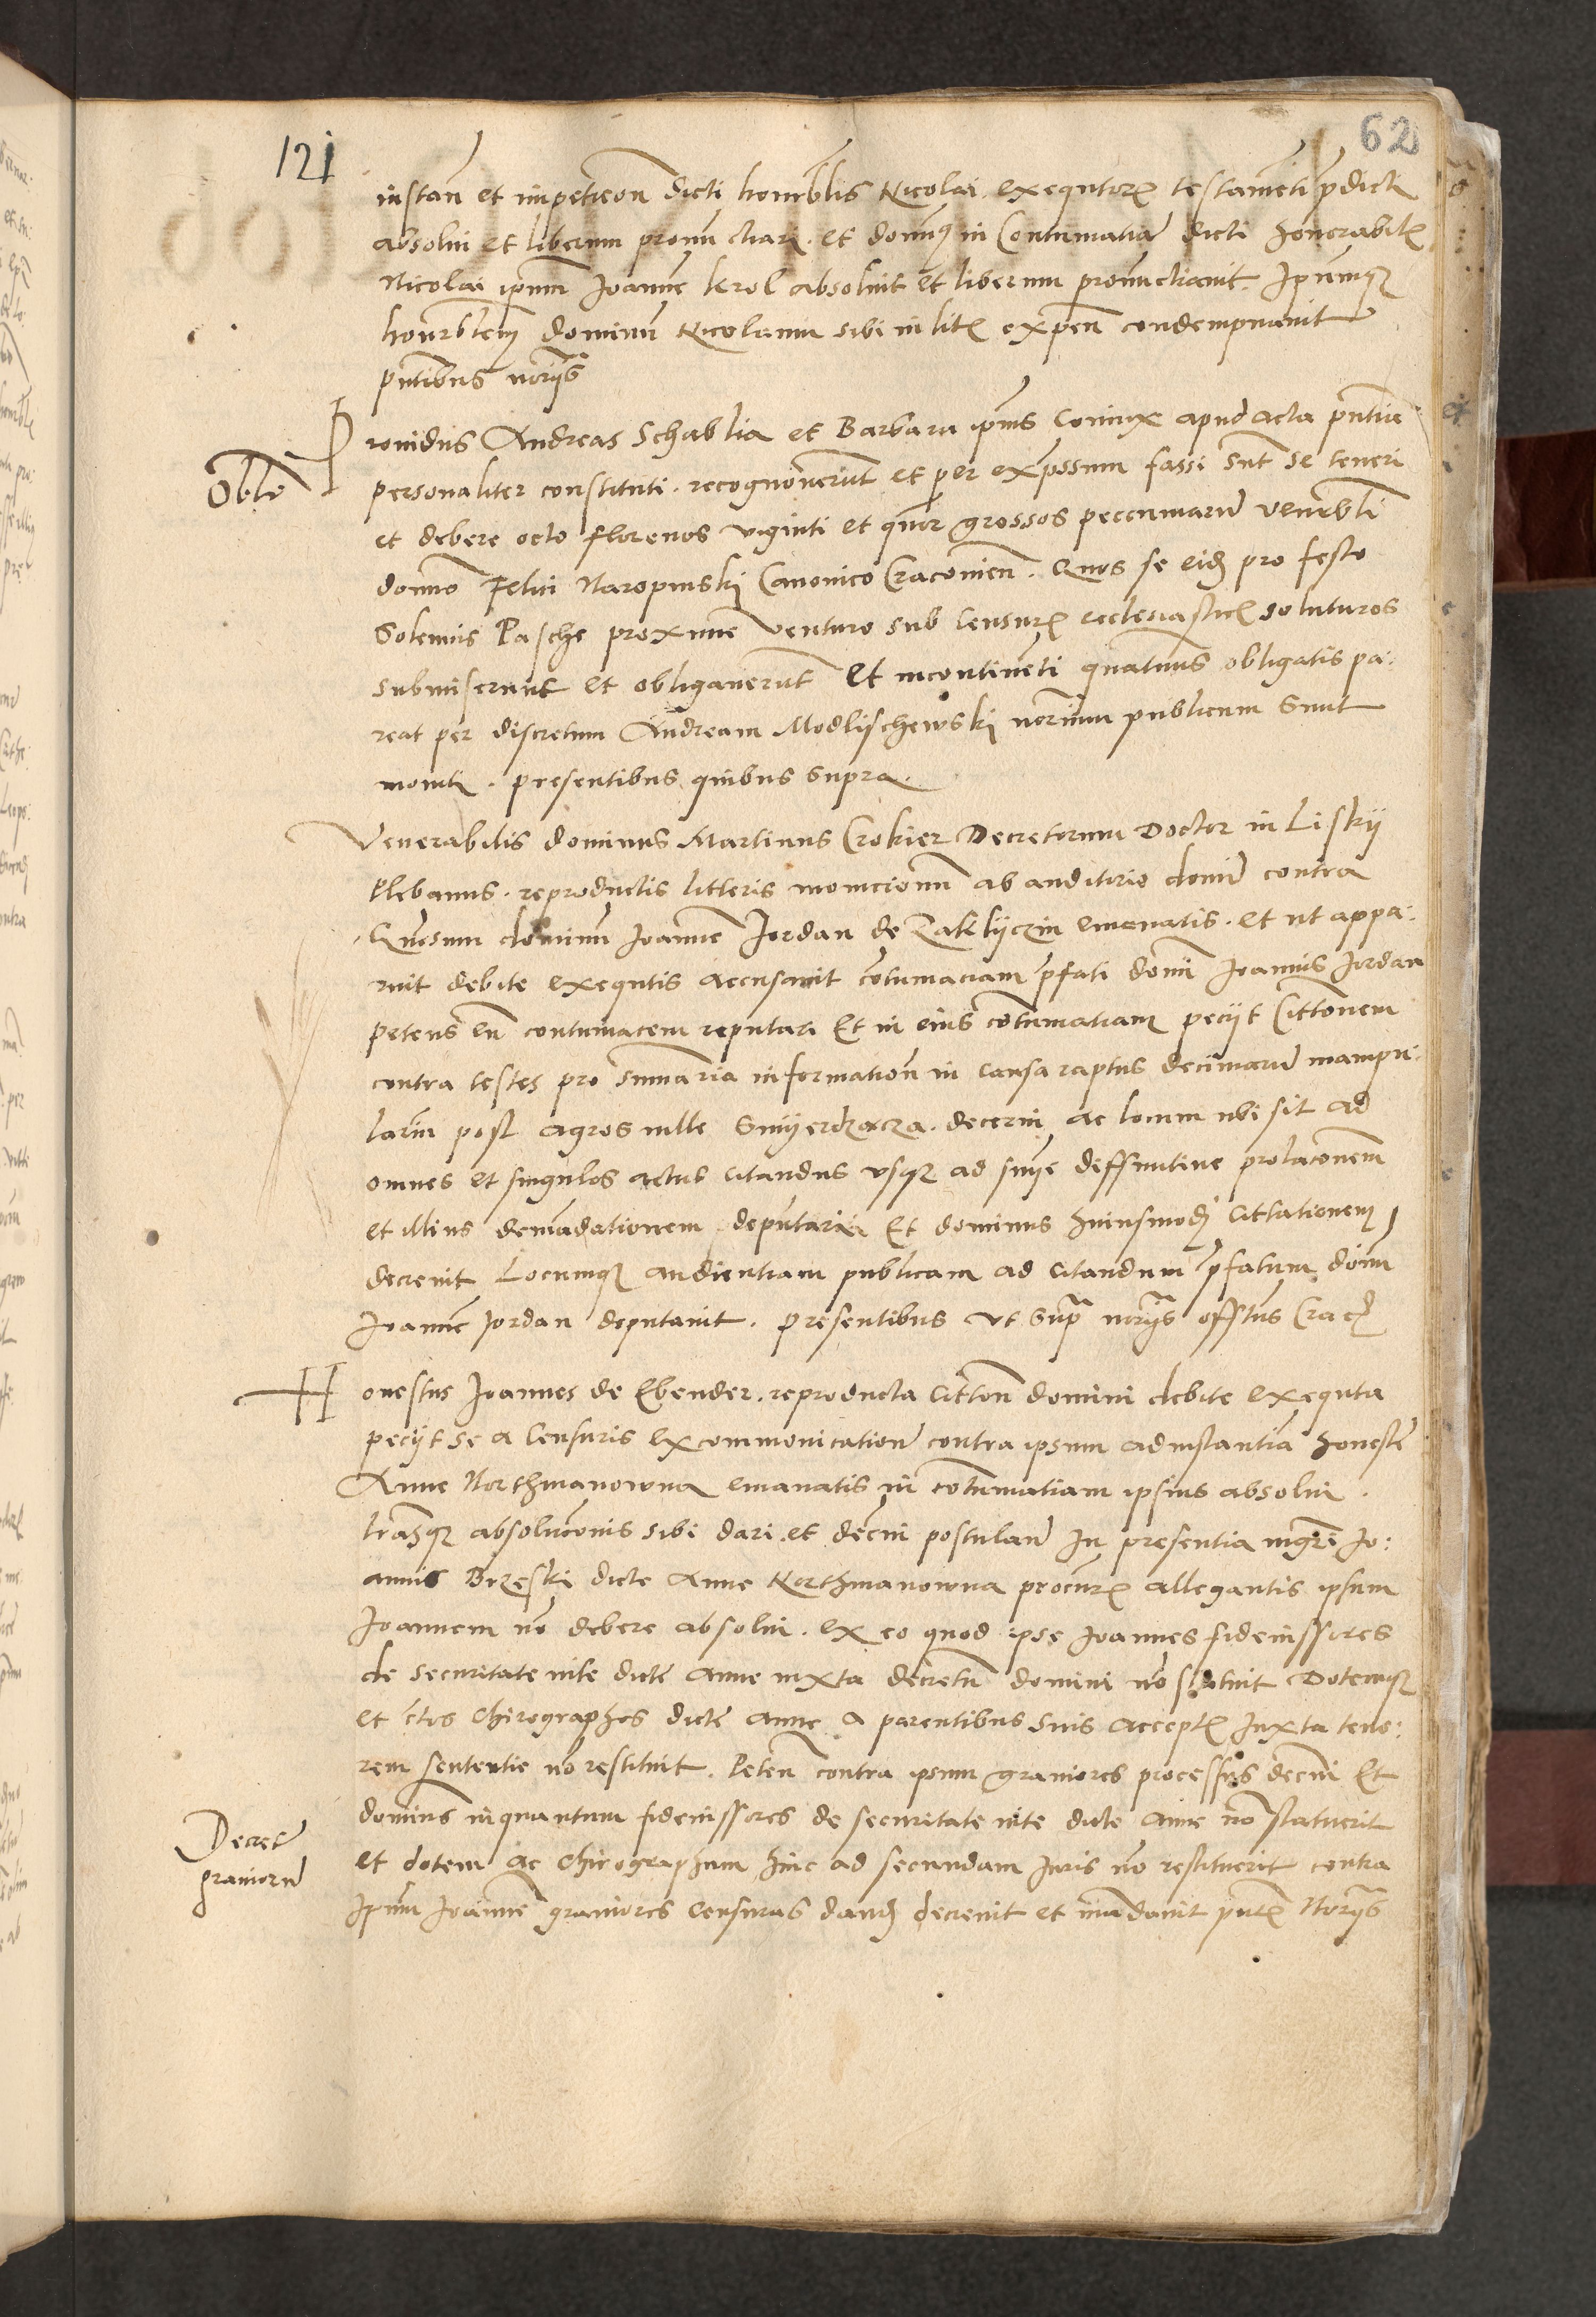 121
62
instan et impeticon dicti honorblis Nicolai exequtoris testamenti pdicti
absolui et liberum pronunctiari. et dominus in Contumatia dicti honorabilis
Nicolai ipsum Joannem krol absoluit et liberum pronunctiauit. Ipsumque
honorblem dominum Nicolaum sibi in litis expen condempnauit
pntibus noriis
Prouidus Andreas Schablia et Barbara ipius Coniux apud acta pntia
Oblo
personaliter constituti. recognouerunt et per expssum fassi sunt se teneri
et debere octo florenos viginti et quor grossos peccuniarum venerbli
domino Felici Naropinski Canonico Cracouien. Quos se eidem pro festo
Solennis Pasche proxime venturo sub censuris ecclesiasticis soluturos
submiserunt et obligauerunt Et incontinenti quatinus obligatis pa:
reat per discretum Andream Modlischewski norium publicum sunt
moniti. presentibus quibus supra.
Venerabilis dominus Martinus Crokier Decretorum Doctor in Liskij
plebanus. reproductis litteris monicionum ab auditorio domini contra
Generosum dominum Joannem Jordan de Zakliczin emanatis. et ut appa:
ruit debite exequtis accusauit contumaciam pfati domini Joannis Jordan
petens eum contumacem reputari Et in eius contumatiam petijt Cittonem
contra testes pro sumaria information in causa raptus decimarum manipu:
larium post agros ville Smijerdzacza. decerni ac locum ubi sit ad
omnes et singulos actus citandus vsque ad snie diffinitiue prolaconem
et illius demandationem deputari Et dominus huiusmodi Citationem
decreuit Locumque audientiam publicam ad citandum pfatum dominum
Joannem Jordan deputauit. presentibus ut supra noriis offitus Crac
Honestus Joannes de Ebender. reproducta Citton domini debite exequta
petijt se a Censuris excommonication contra ipsum ad instantiam honeste
Anne Northmanowna emanatis in contumatiam ipsius absolui.
lrasque absoluconis sibi dari et decerni postulan In presentia mgri Jo:
annis Brzeski dicte Anne Northmanowna procuris allegantis ipsum
Joannem non debere absolui. ex eo quod ipse Joannes fideiussores
de securitate vite dicte Anne iuxta decretum domini non statuit Dotemque
et ctos Chirographos dicte Anne a parentibus suis acceptis Juxta teno:
rem sententie non restituit. Peten contra ipsum grauiores processus decerni Et
dominus inquantum fideiussores de securitate vite dicte Anne non statuerit
Decret
grauiorum
et dotem ac Chirographum hinc ad secundam Juris non restituerit contra
ipsum Joannem grauiores censuras dandas decreuit et mandauit pntibus Noriis